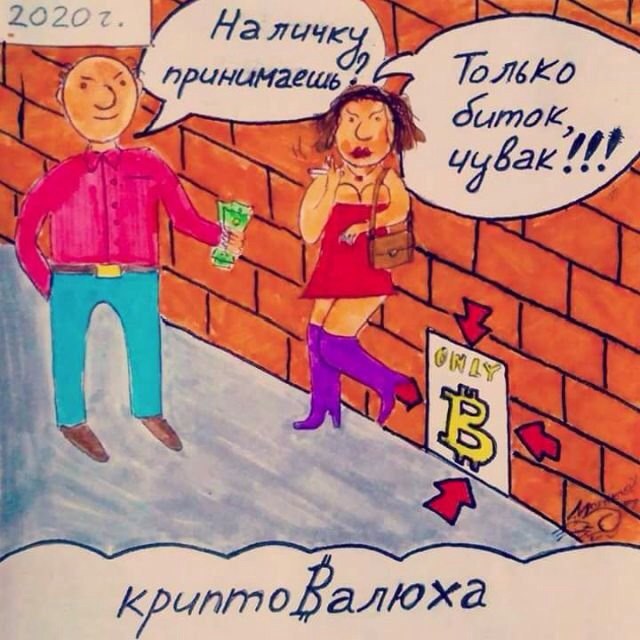 2020 г.
Наличку
принимаешь?
Только
биток,
чувак!!!
ONLY
₿
крипто₿алюха